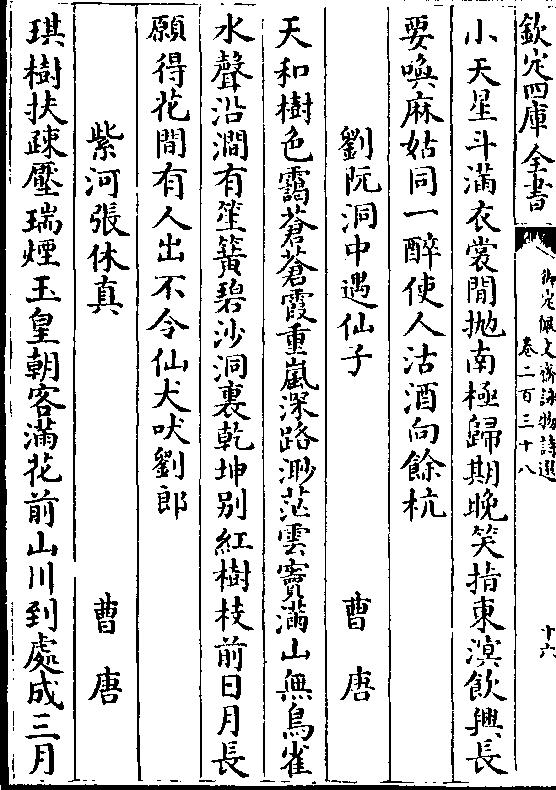 欽定四庫全書
御定佩文齋詠物詩選
卷二百三十八
十六
小天星斗滿衣裳閒抛南極歸期晚笑指東溟飲興長
要喚麻姑同一醉使人沽酒向餘杭
劉阮洞中遇仙子 曹唐
天和樹色靄蒼蒼霞重嵐深路渺茫雲竇滿山無鳥雀
水聲沿澗有笙簧碧沙洞裏乾坤别紅樹枝前日月長
願得花間有人出不令仙犬吠劉郎
紫河張休真 曹唐
琪樹扶疎壓瑞煙玉皇朝客滿花前山川到處成三月